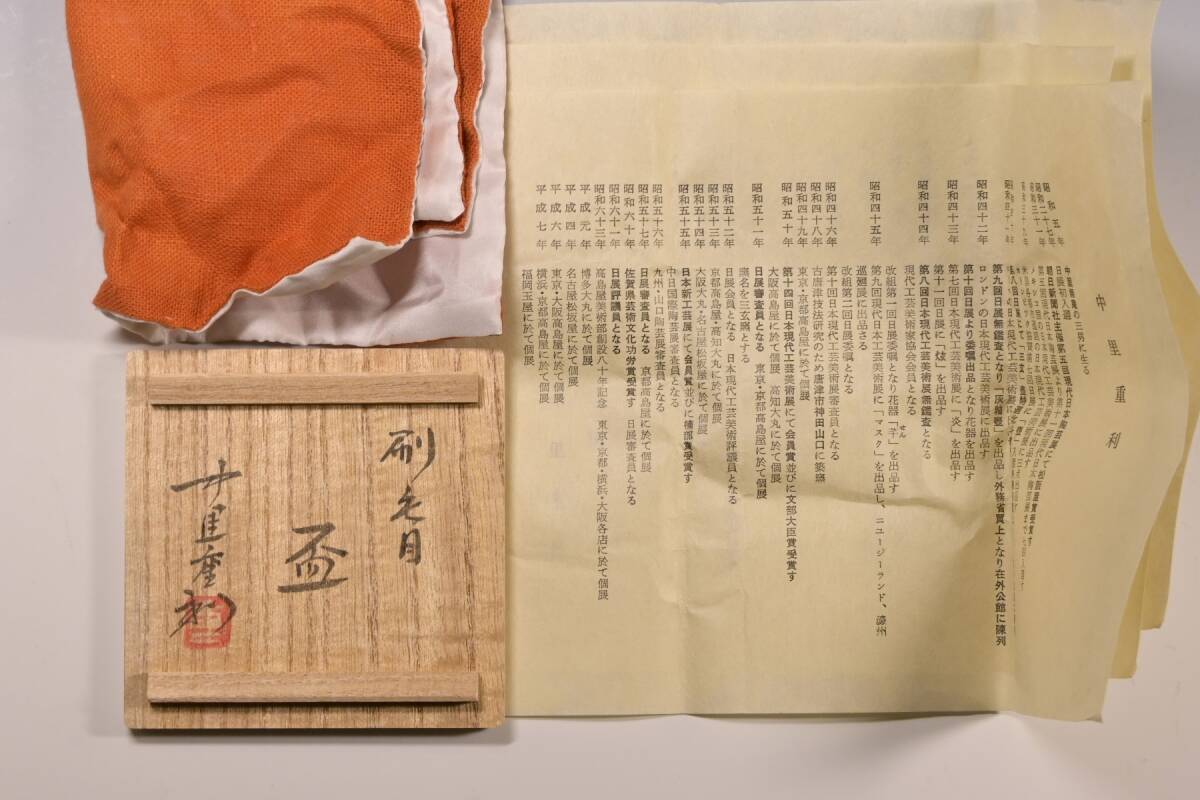 中里重利
昭和五年
中里無庵の三男に生る
昭和四十二年
第九回日展無鑑査となり「灰釉壺」を出品し外務省買上となり在外公館に陳列
ロンドンの日本現代工芸美術展に出品す
昭和四十三年
第十回日展より委嘱出品となり花器を出品す
第七回日本現代工芸美術展に「炎」を出品す
第十一回日展に「炫」を出品す
昭和四十四年
第八回日本現代工芸美術展無鑑査となる
現代工芸美術家協会会員となる
改組第一回日展委嘱となり花器「芊」を出品す
せん
昭和四十五年
第九回現代日本工芸美術展に「マスク」を出品し、ニュージーランド、濠州
巡廻展に出品さる
改組第二回日展委嘱となる
昭和四十六年
第十回日本現代工芸美術展審査員となる
昭和四十八年
古唐津技法研究のため唐津市神田山口に築窯
昭和四十九年
東京・京都高島屋に於て個展
昭和五十年
第十四回日本現代工芸美術展にて会員賞並びに文部大臣賞受賞す
大阪高島屋に於て個展 高知大丸に於て個展
昭和五十一年
日展審査員となる 東京・京都高島屋に於て個展
窯名を三玄窯とする
昭和五十二年
日展会員となる 日本現代工芸美術評議員となる
昭和五十三年
京都高島屋・高知大丸に於て個展
昭和五十四年
大阪大丸・名古屋松坂屋に於て個展
昭和五十五年
日本新工芸展にて会員賞並びに楠部賞受賞す
中日国際陶芸展審査員となる
昭和五十六年
九州・山口陶芸展審査員となる
昭和五十七年
日展審査員となる 京都高島屋に於て個展
昭和六十年
佐賀県芸術文化功労賞受賞す 日展審査員となる
昭和六十一年
日展評議員となる
昭和六十三年
高島屋美術部創設八十年記念 東京・京都・横浜・大阪各店に於て個展
平成元年
博多大丸に於て個展
平成四年
名古屋松坂屋に於て個展
平成六年
東京・大阪高島屋に於て個展
平成七年
横浜・京都高島屋に於て個展
福岡玉屋に於て個展
刷毛目
盃
中里重利